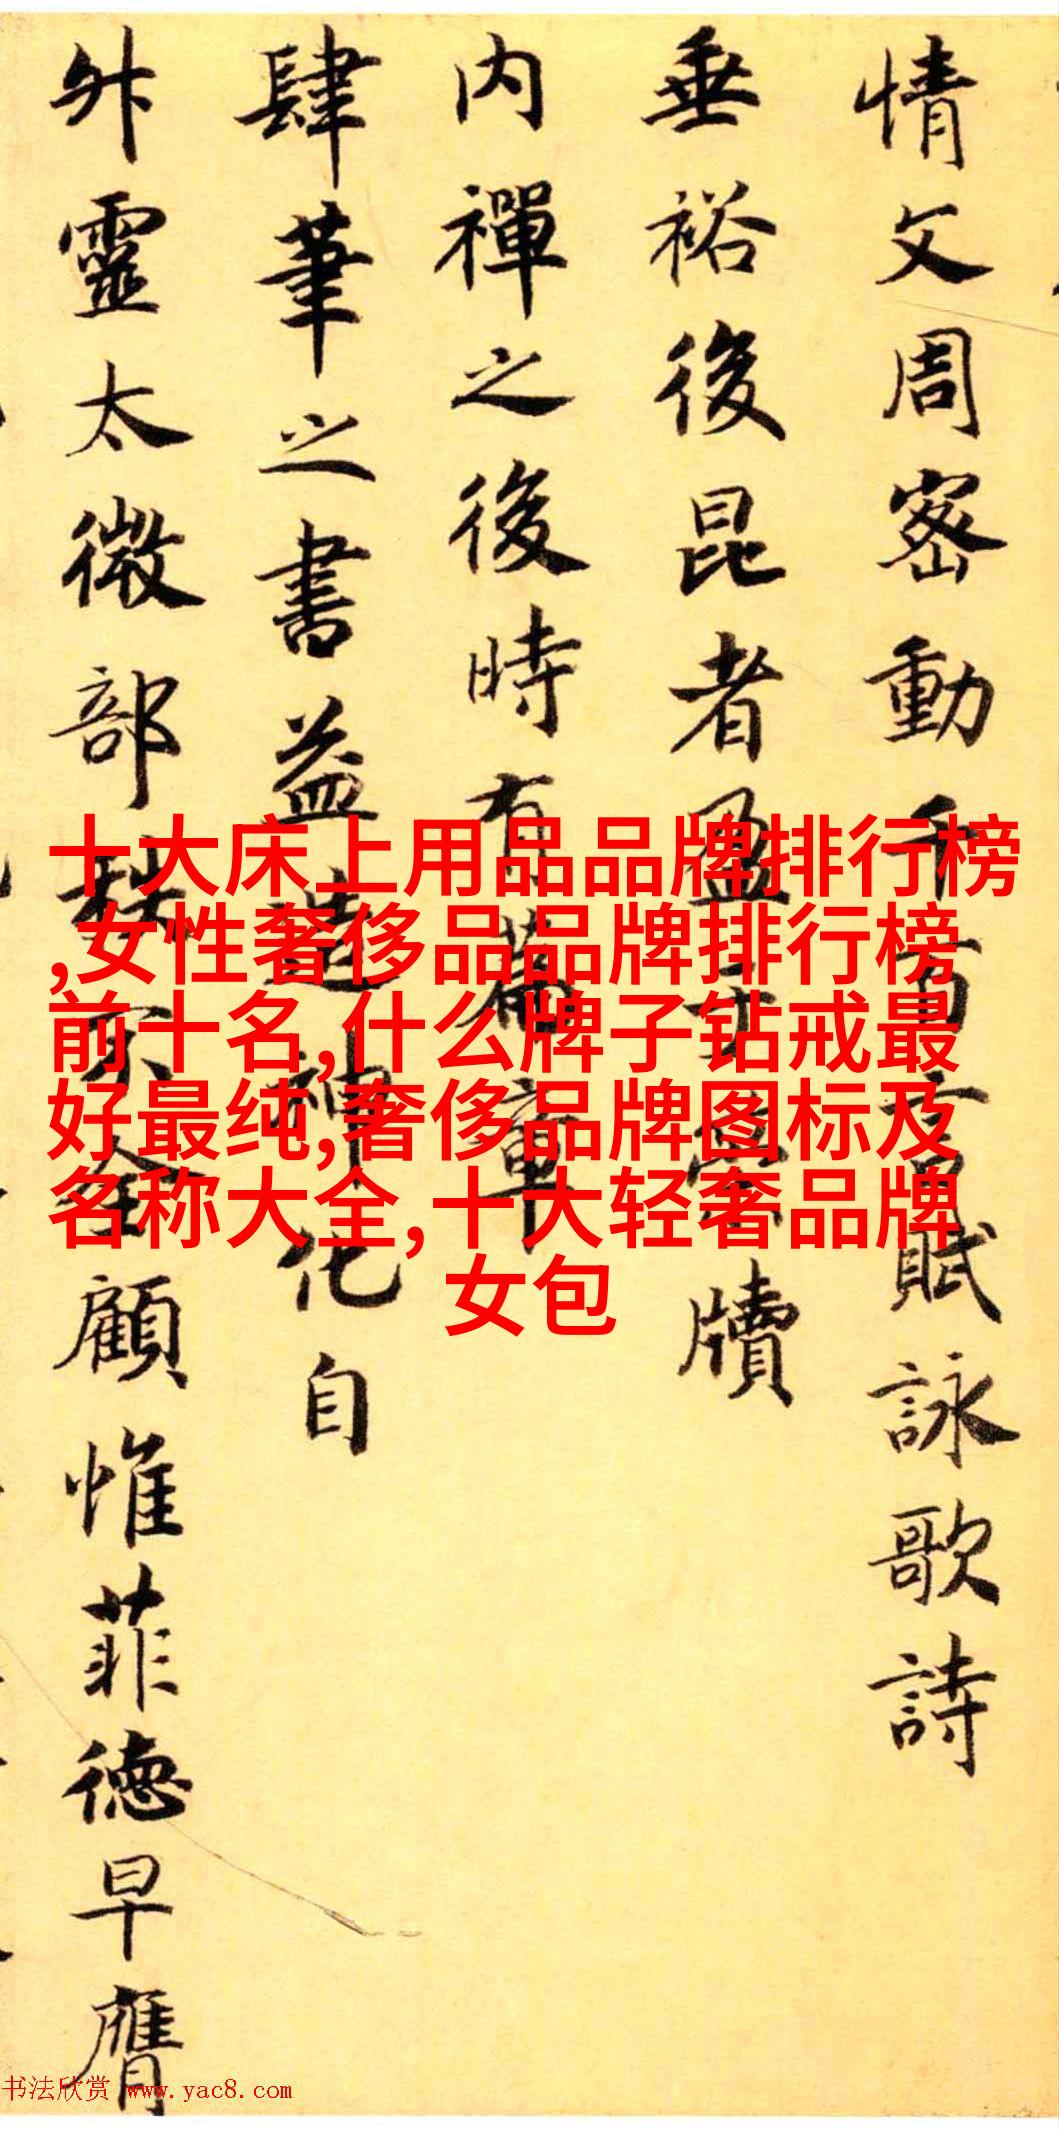 情文周密動千百言賦詠歌詩
垂裕後昆者盈
牘
内禪之後時有篇章
肆筆之書益造神化自
舛靈太微部
顧惟菲德早膺
十大床上用品品牌排行榜
,女性奢侈品品牌排行榜
前十名,什么牌子钻戒最
好最纯,奢侈品牌图标及
名称大全,十大轻奢品牌
女包
书法欣赏 www.yac8.com